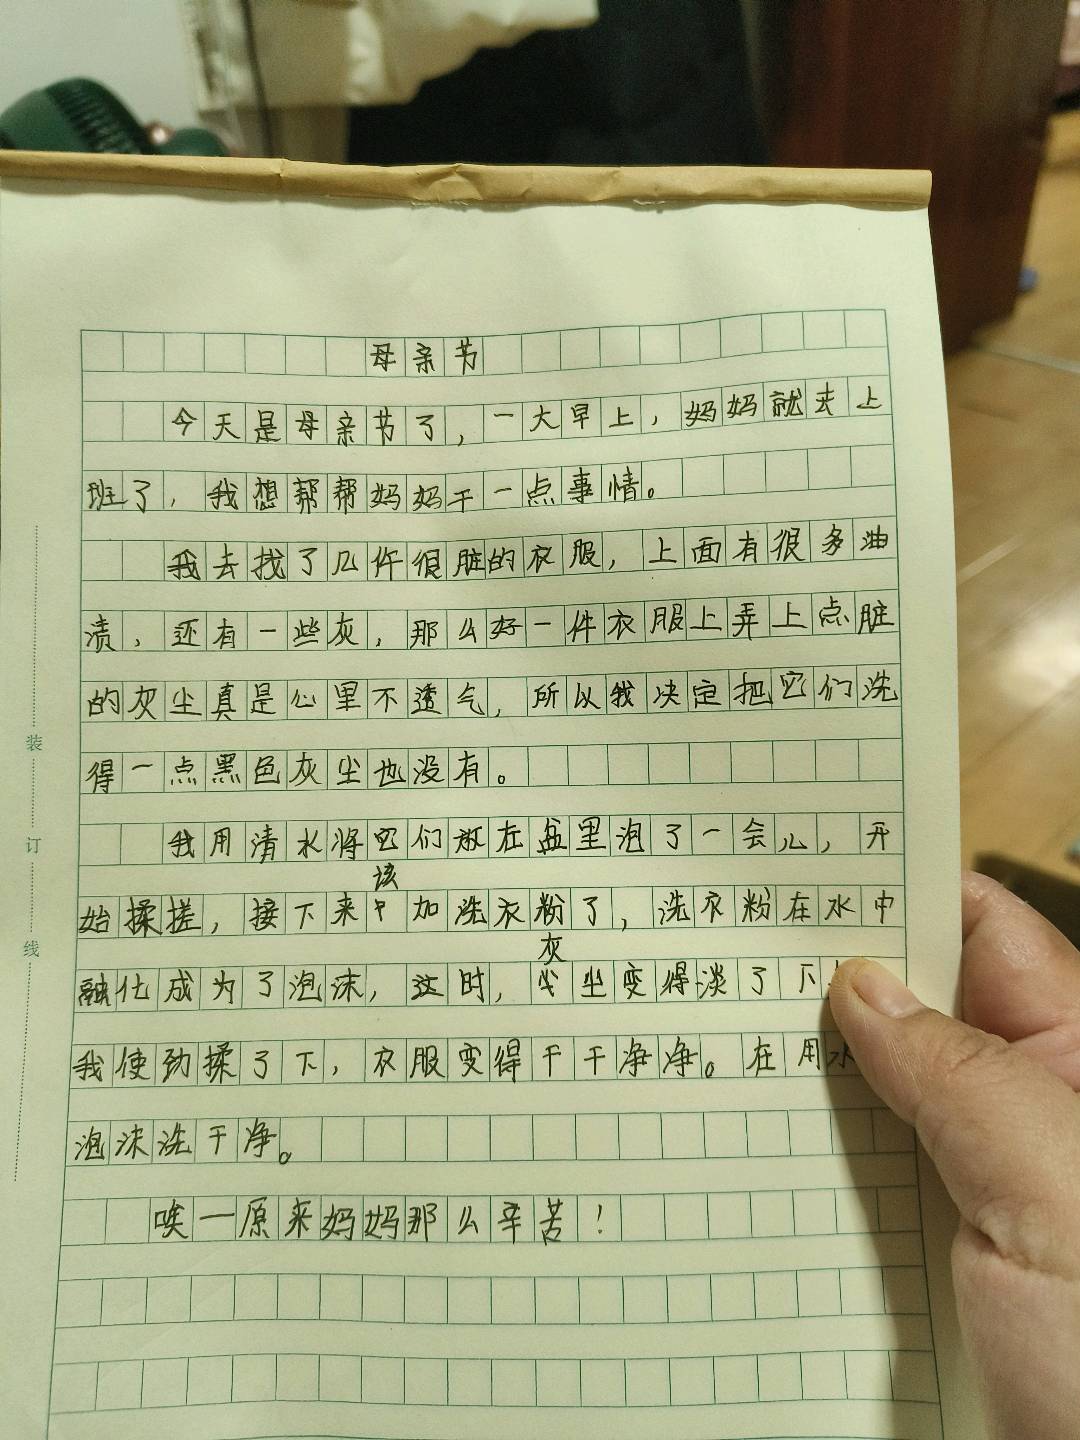 母亲节
今天是母亲节了，一大早上，妈妈就去上
班了，我想帮帮妈妈干一点事情。
我去找了几件很脏的衣服，上面有很多油
渍，还有一些灰，那么好一件衣服上弄上点脏
的灰尘真是心里不透气，所以我决定把它们洗
得一点黑色灰尘也没有。
我用清水将它们放在盆里泡了一会儿，开
始揉搓，接下来该加洗衣粉了，洗衣粉在水中
融化成为了泡沫，这时，灰尘变得淡了下
我使劲揉了下，衣服变得干干净净。在用水
泡沫洗干净。
唉一原来妈妈那么辛苦！
装
订
线